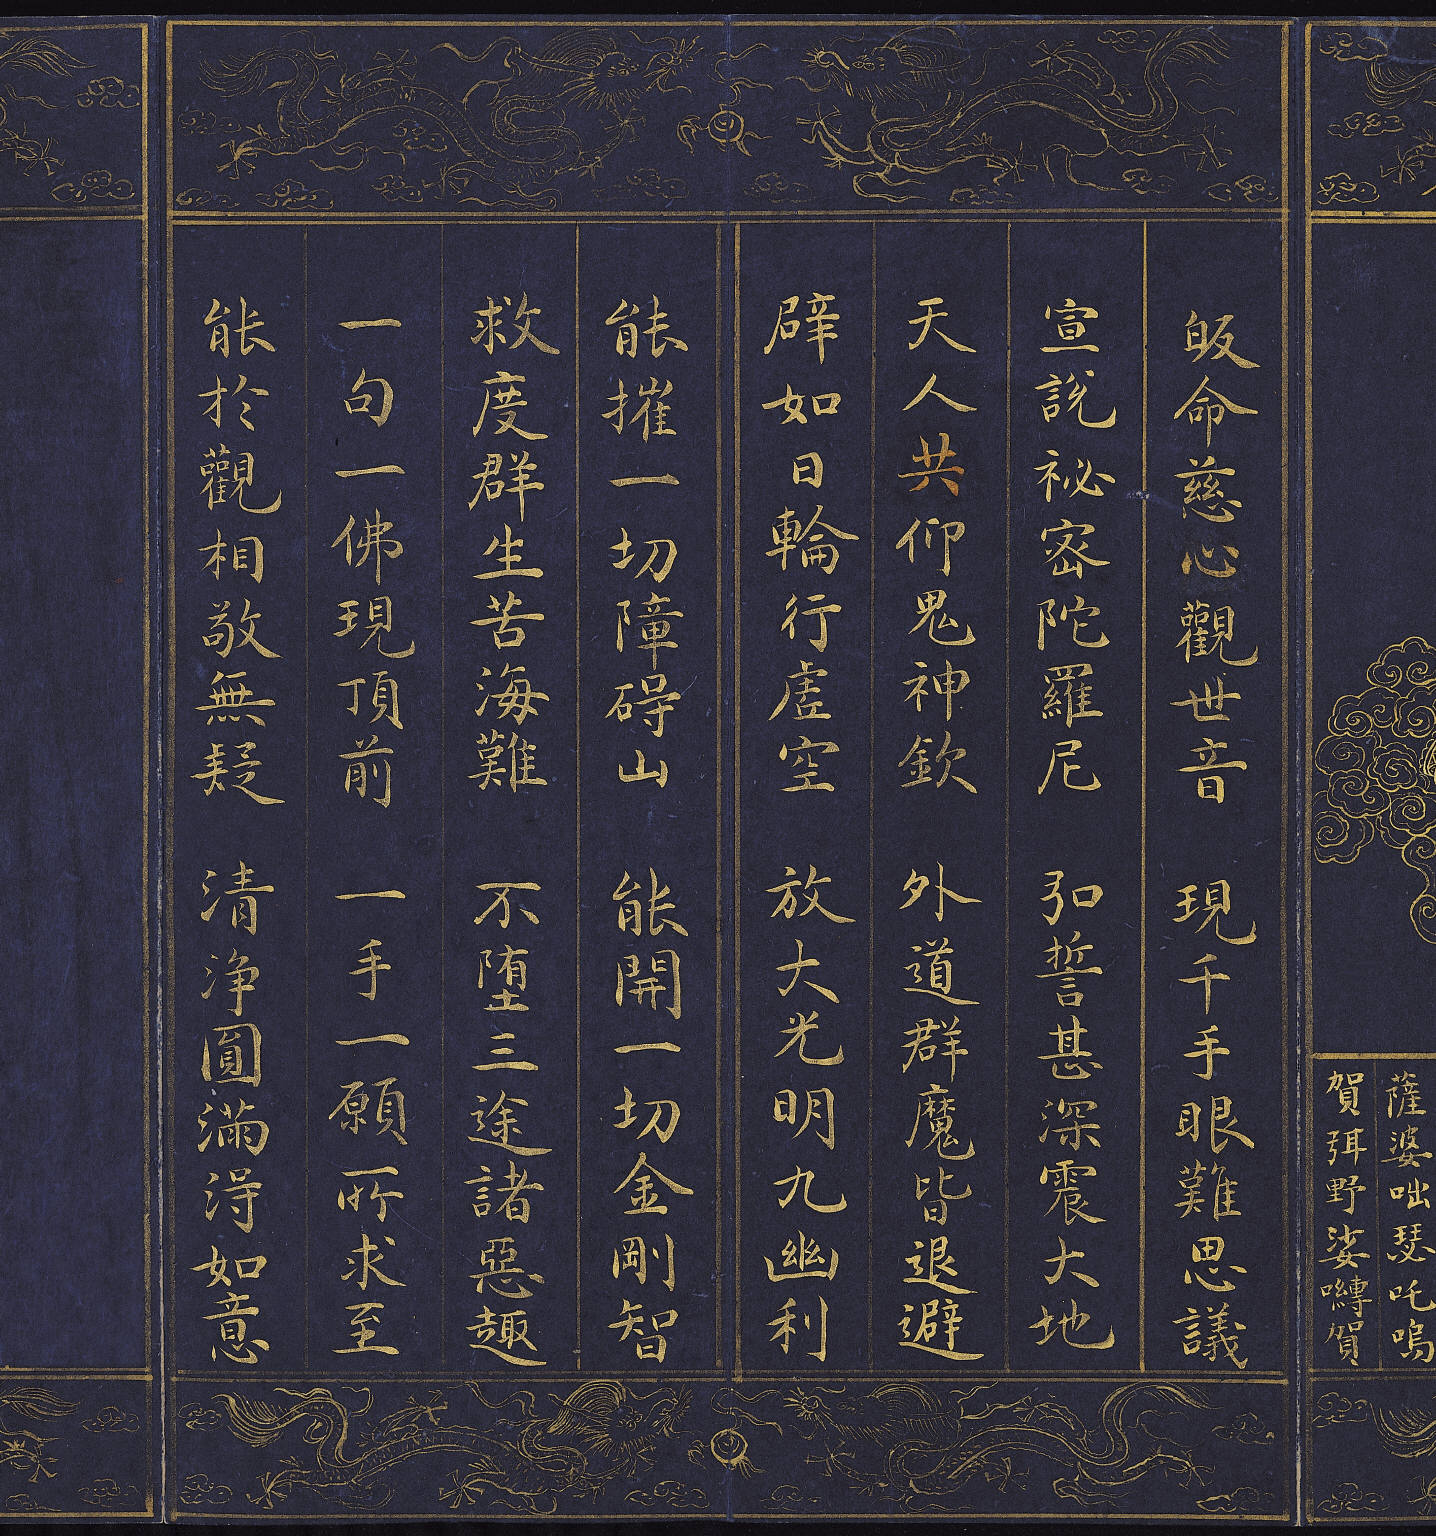 薩婆咄瑟吒嗚
賀弭野娑囀賀
皈命慈心觀世音　現千手眼難思議
宣說祕密陀羅尼　弘誓甚深震大地
天人共仰鬼神欽　外道群魔皆退避
辟如日輪行虛空　放大光明九幽利
能摧一切障碍山　能開一切金剛智
救度群生苦海難　不墮三途諸惡趣
一句一佛現頂前　一手一願所求至
能於觀相敬無疑　清淨圓滿淂如意